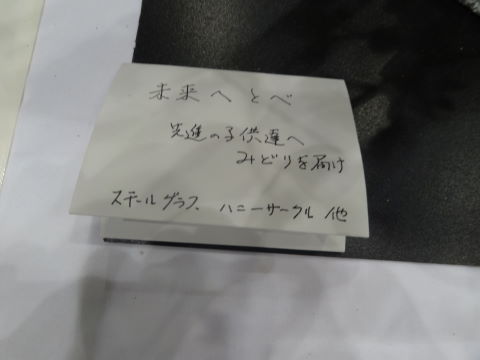 未来へとべ
先進の子供達へ
みどりを届け
スチールグラス、ハニーサークル 他